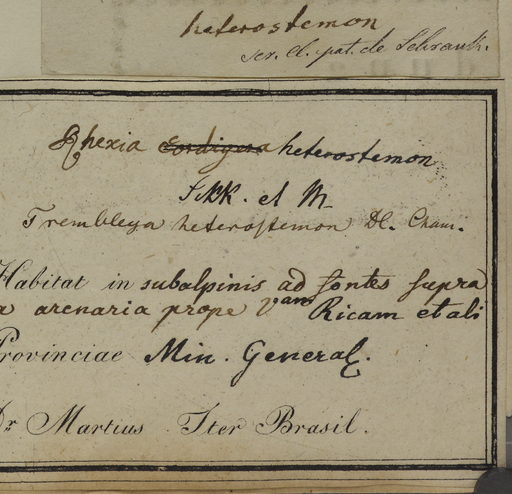 heterostemon
scr. cl. pat. de Schrank.
Rhexia cordigera heterostemon
Schk. et M
Trembleya heterostemon DC. Cham.
Habitat in subalpinis ad fontes supra
arenaria prope Vam Ricam et ali
Provinciae Min. General.
Dr Martius Iter Brasil.